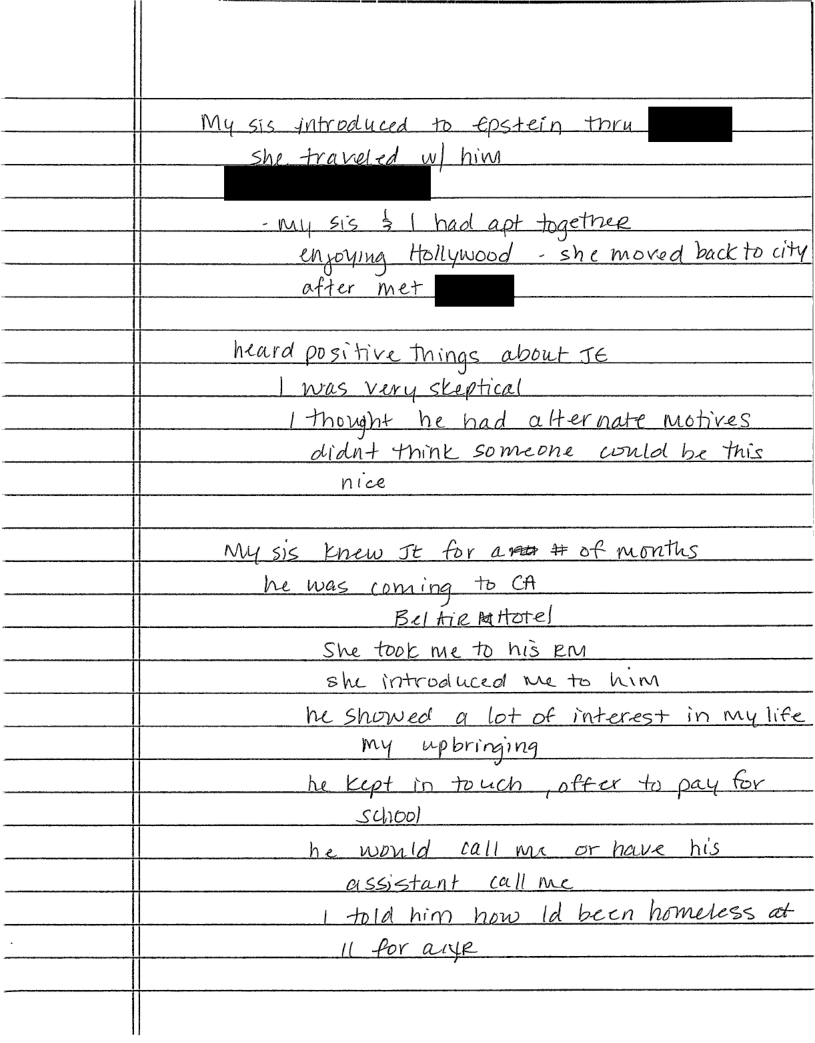 My sis introduced to Epstein thru
she traveled w/ him
- my sis & I had apt together
enjoying Hollywood - she moved back to city
after met
heard positive things about JE
I was very skeptical
I thought he had alternate motives
didnt think someone could be this
nice
My sis knew JE for a # of months
he was coming to CA
Bel Air Hotel
She took me to his RM
she introduced me to him
he showed a lot of interest in my life
my upbringing
he kept in touch, offer to pay for
school
he would call me or have his
assistant call me
I told him how Id been homeless at
11 for a